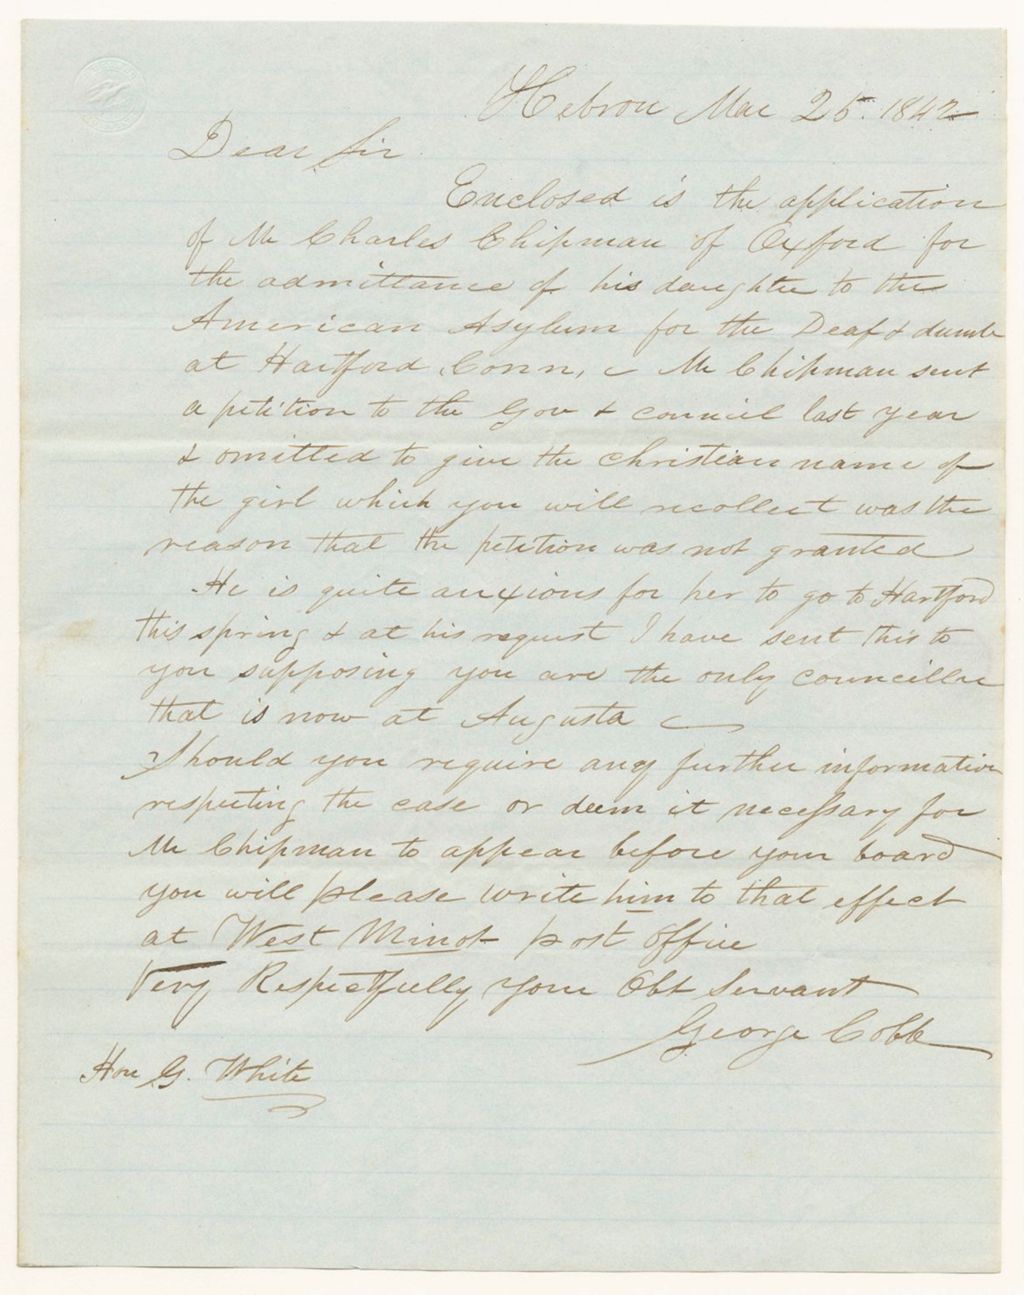 Hebron Mar 25. 1842
Dear Sir
Enclosed is the application
of Mr Charles Chipman of Oxford for
the admittance of his daughter to the
American Asylum for the Deaf & dumb
at Hartford, Conn, Mr Chipman sent
a petition to the Gov & council last year
& omitted to give the christian name of
the girl which you will recollect was the
reason that the petition was not granted
He is quite anxious for her to go to Hartford
this spring & at his request I have sent this to
you supposing you are the only councillor
that is now at Augusta
Should you require any further information
respecting the case or deem it necessary for
Mr Chipman to appear before your board
you will please write him to that effect
at West Minot post office
Very Respectfully your Obt Servant
George Cobb
Hon G. White